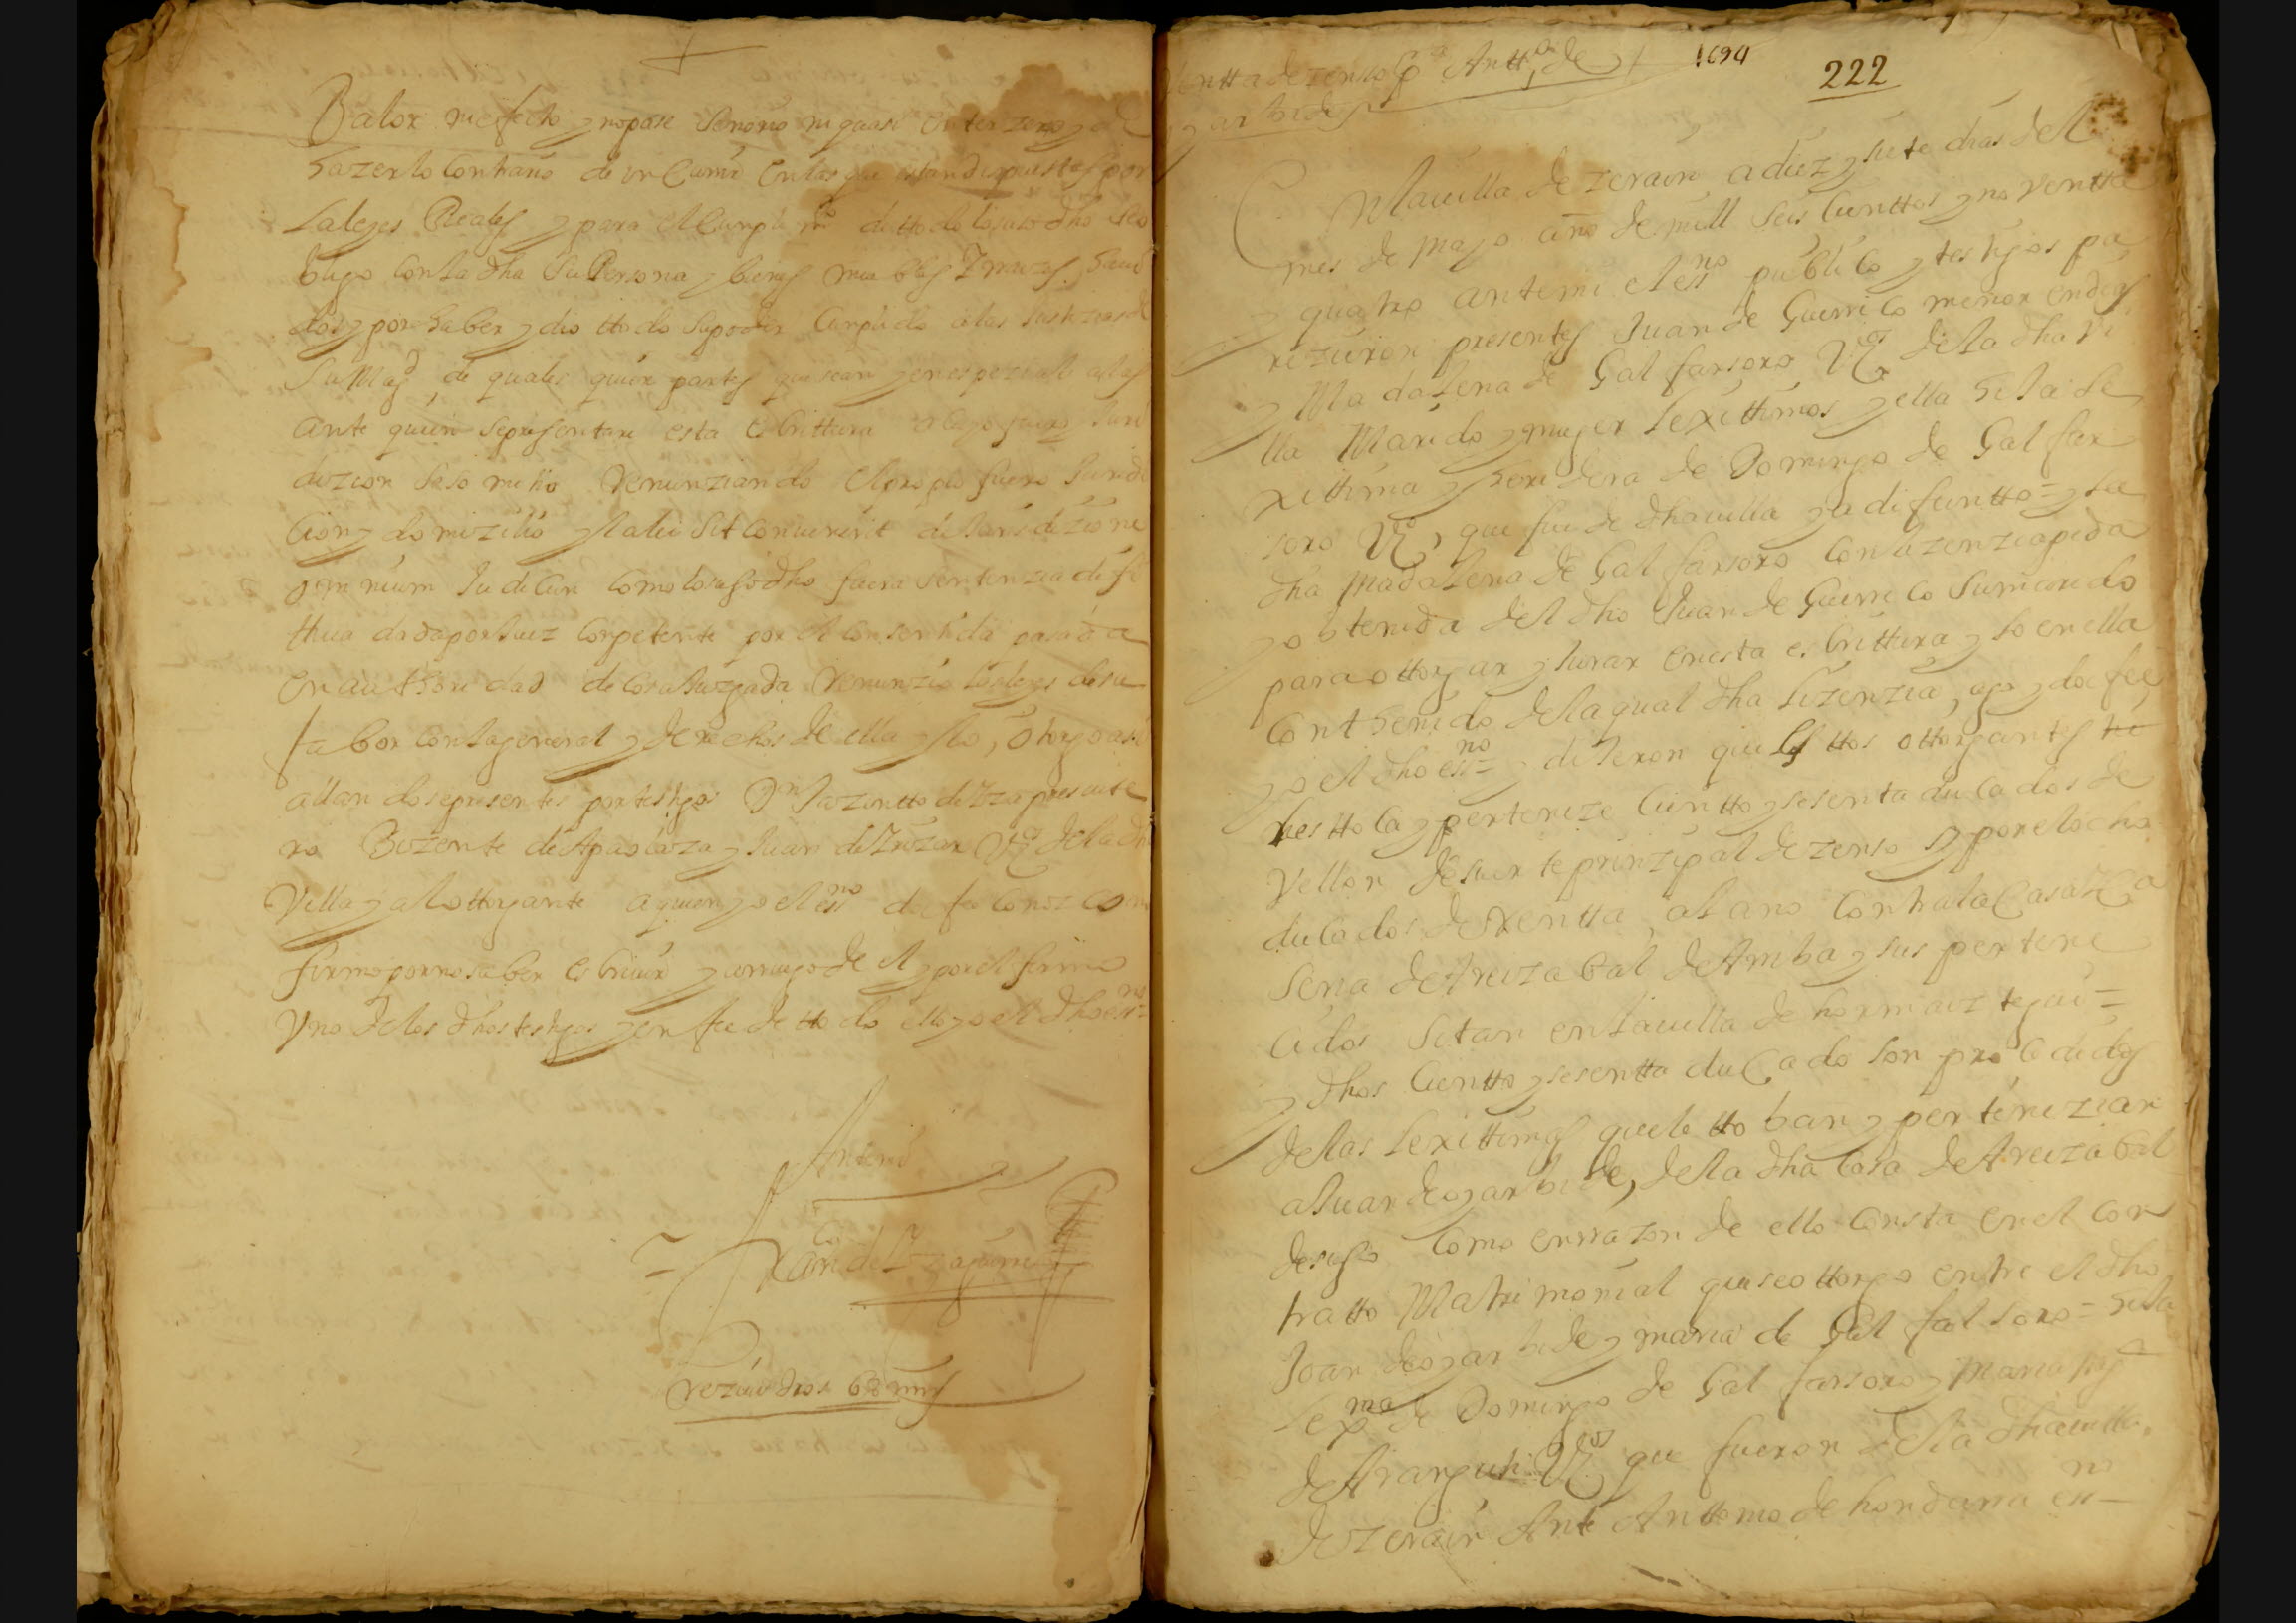 Balor ni efecto y no pase Senorio ni quasi en terzero y de
hazerlo Contrario de yn Currir en las que estan dispuestas por
La leyes Reales y para el Cumplimto de ttodo lo suso dho se o
bligo con la dha Su Persona y bienes muebles Y raizes, haui
dos y por haber y dio ttodo Su poder Cumplido a las Justizias de
Su Magd, de quales quier partes que sean y en espezial a las
ante quien se presentare esta esCrittura a Cuyo fuero Juris
dizion se so mettio Renunziando el propio fuero Juridi
Cion y domizilio y la lei Sit Conuenerit de Jurisdizione
omnium Judicun Como lo suso dho fuera sentenzia difi
thiua dada por Juez Conpetente por el Consentida pasada
en authoridad de Cosa Juzgada Renunzio las leyes de su
fabor con la general y derechos de ella y lo, otorgo asi
allandose presentes por testigos Dn Jazintto de Yza presuite
ro Bizente de Apaolaza y Juan de Yrizar Vos de la dha
Villa y al ottorgante a quien yo el essno doi fee Conozco no
firmo por no saber esCriuir y a rruego de el y por el firmo
Vno de los dhos testigos y en fee de ttodo ello yo el dho essno
Ante mi
Juan de Yzaguirre
rezeui dros 68 mrs
Ventta de zenso Pa Antta de
ygarbide
1694
222
En la uilla de zerain a diez y siete dias del
mes de mayo año de mill Seis Cienttos y no ventta
y quatro ante mi el essno publico y testigos pa
rezieron presentes Juan de Guerrico menor en dias
y Madalena de Galfarsoro Vos de la dha vi
lla Marido y muger lexittimos y ella hija le
xittima y heredera de Domingo de Galfar
soro Vo, que fue de dha uilla ya difuntto = y la
dha Madalena de Galfarsoro Con lizenzia pedida
y obtenida del dho Juan de Guerrico Su marido
para ottorgar y Jurar en esta esCrittura y lo en ella
Conthenido de la qual dha lizenzia, yo doi fee
yo el dho essno = y dixeron que a los ttos ottorgantes
les ttoca y perteneze Ciento y sesenta ducados de
Vellon de suerte prinzipal de zenso y por el ocho
ducados de Rentta, al año Contra la Casa
de Areizabal de Arriba y sus pertene
cidos Sitan en la uilla de hormaiztegui =
y dhos Cientto y sesentta duCado son procedidos
de las lexittimas que le ttoban y pertenezian
a Juan de ygarbide, de la dha Casa de Areizabal
de suso Como en rrazon de ello Consta en el Con
tratto Matrimonial que se ottorgo entre el dho
Joan de ygarbide y maria de Galfalsoro = hija
lexma de Domingo de Galfarsoro y Maria
de Aranguti Vos que fueron de la dha uilla
de zerain Ante Anttonio de hondarra essno